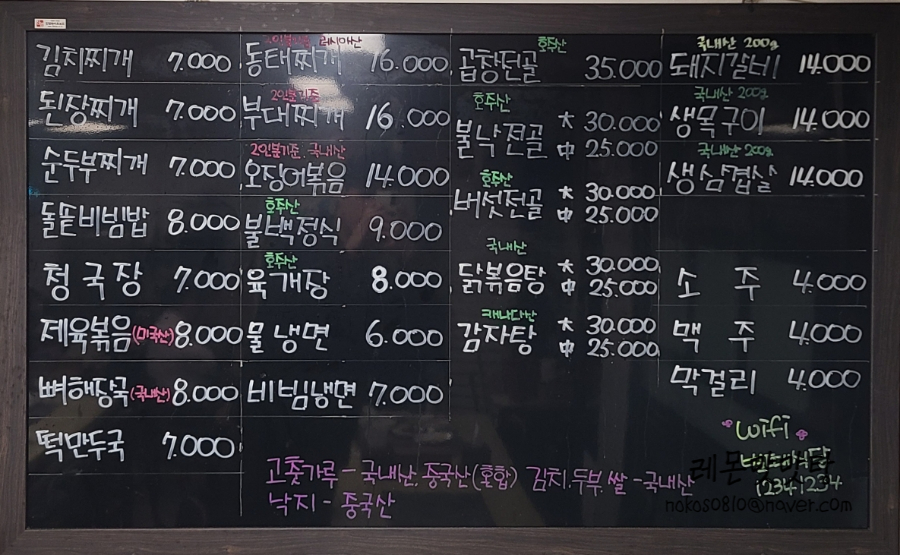 김치찌개 7.000
된장찌개 7.000
순두부찌개 7.000
돌솥비빔밥 8.000
청국장 7.000
제육볶음(미국산) 8.000
뼈해장국(국내산) 8.000
떡만두국 7.000
러시아산
동태찌개 16.000
2인분기준
부대찌개 16.000
2인분기준. 국내산
오징어볶음 14.000
호주산
불백정식 9.000
호주산
육개장 8.000
물냉면 6.000
비빔냉면 7.000
호주산
곱창전골 35.000
호주산
불낙전골 大 30.000
中 25.000
호주산
버섯전골 大 30.000
中 25.000
국내산
닭볶음탕 大 30.000
中 25.000
캐나다산
감자탕 大 30.000
中 25.000
국내산 200g
돼지갈비 14.000
국내산 200g
생목구이 14.000
국내산 200g
생삼겹살 14.000
소주 4.000
맥주 4.000
막걸리 4.000
wifi
12341234
고춧가루 - 국내산, 중국산(혼합) 김치.두부.쌀 - 국내산
낙지 - 중국산
nokoso810@naver.com